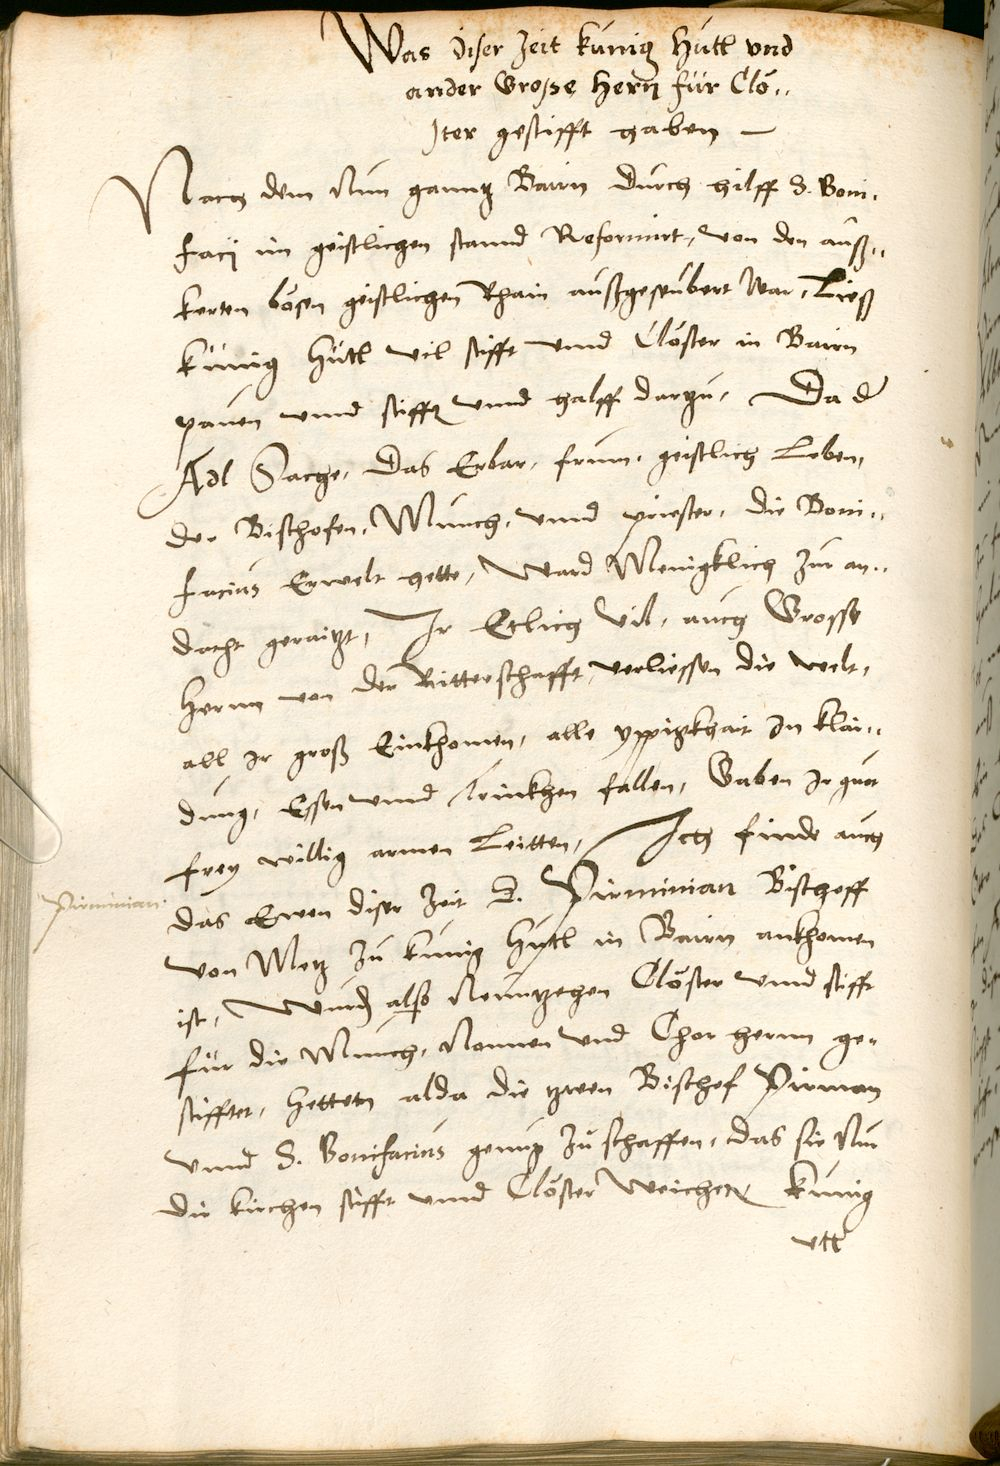 Was diser Zeit künig Hütl vnd
ander Grosse Hern für Clö..
ster gestifft haben —
Nach dem Nun ganntz Bairn durch hilff S. Boni.
facij im geistlichen stannd Reformirt, von den auß..
kerten bösen geistlichen Rhain außgeseubert War, Ließ
künig Hütl vil stifft vnnd Clöster in Bairn
pauen vnnd stifftn vnnd halff dartzu, Da d
Adl Sache, das Erbar, frum, geistlich Leben,
der Bischofen, Münch, vnnd priester, die Boni..
facius Erwelt hette, Ward Menigklich zur an..
dacht geraitzt, Ir Etlich vil, auch Grosse
Herrn von der Ritterschafft, verliessen die welt,
all Ir groß Einkhomen, alle yppigkhait In klai..
dung, Essen vnnd trinkhen fallen, Gaben Ir guot
frey willig armen Leitten, Ich finde auch
Pirminian
das Ewen diser Zeit S. Pirminian Bischoff
von Metz zu künig Hütl in Bairn ankhomen
ist, Wurdn also Neuntzehen Clöster vnnd stifft
für die Münch, Nonnen vnd Chor herrn ge-
stifftet, Hetten alda die zwen Bischof Pirman
vnnd S. Bonifacius genug zu schaffen, das sie Nur
die kirchen stifft vnnd Clöster Weichen künig
vtt